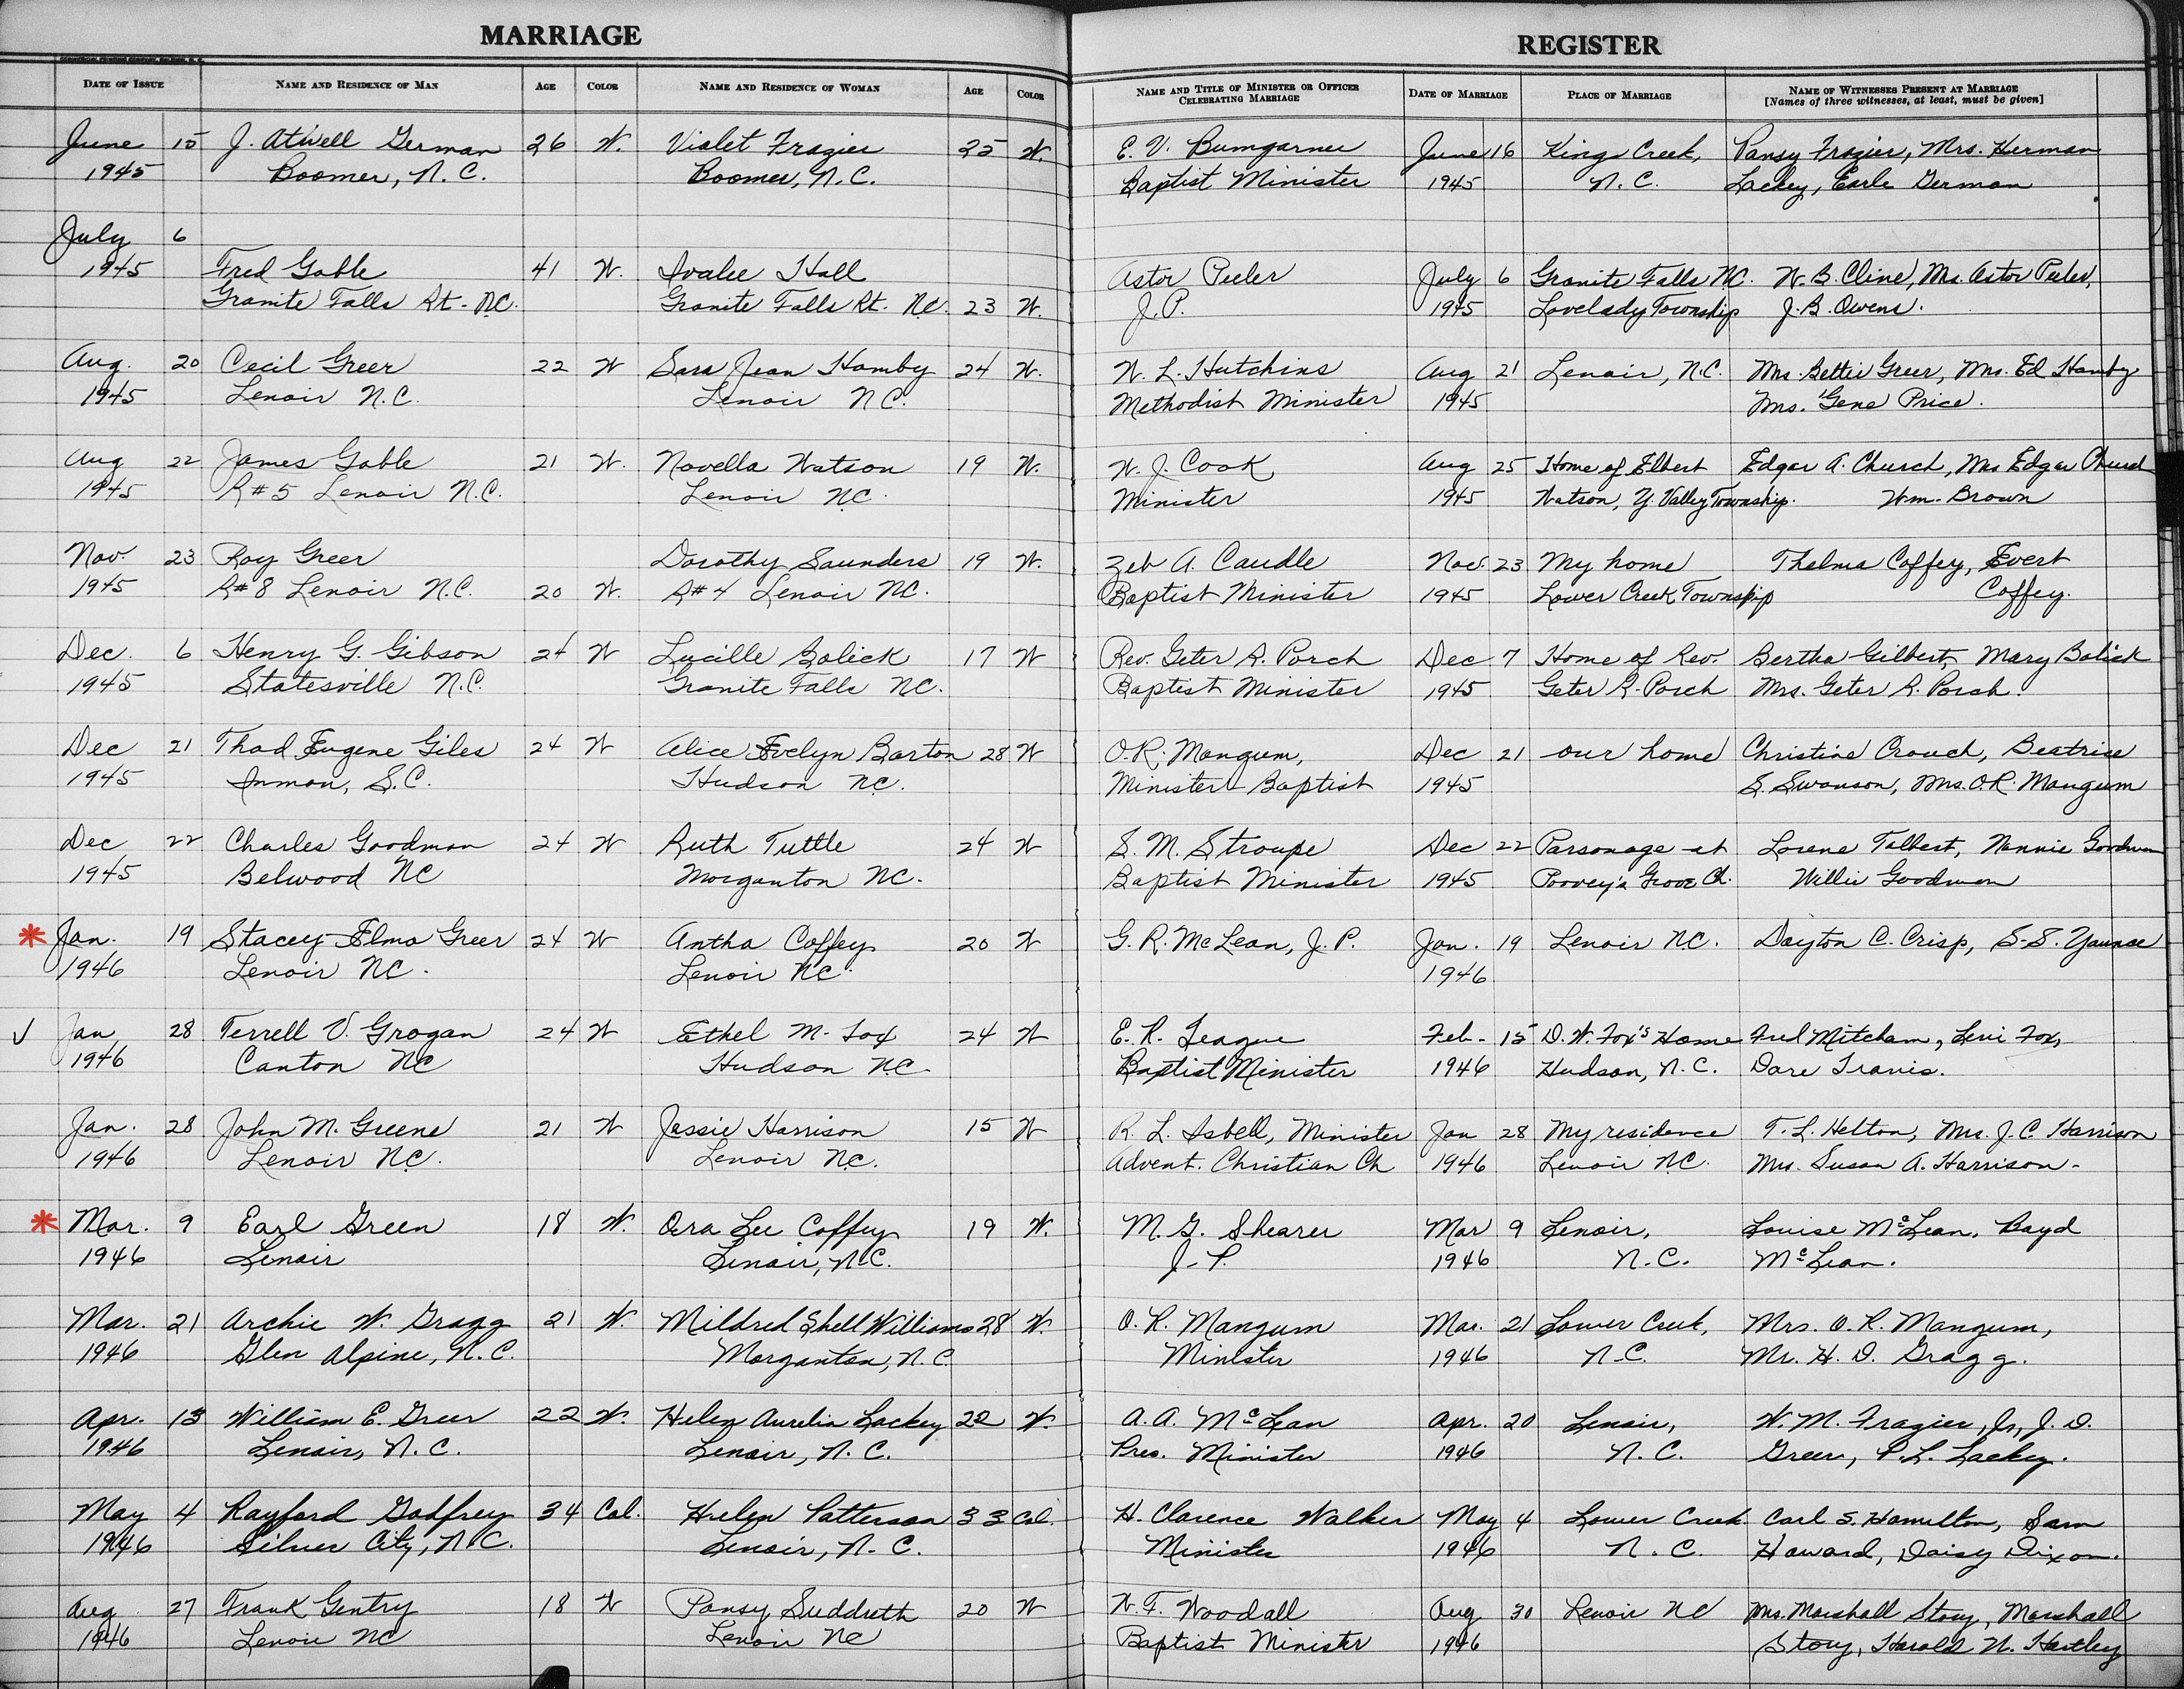 MARRIAGE REGISTER
DATE OF ISSUE NAME AND RESIDENCE OF MAN AGE COLOR NAME AND RESIDENCE OF WOMAN AGE COLOR NAME AND TITLE OF MINISTER OR OFFICER CELEBRATING MARRIAGE DATE OF MARRIAGE PLACE OF MARRIAGE NAME OF WITNESSES PRESENT AT MARRIAGE
[Names of three witnesses, at least, must be given]
June 15 J. Atwell German 26 W. Violet Frazier 25 W. E. V. Bumgarner June 16 Kings Creek, Pansy Frazier, Mrs. Herman
1945 Boomer, N.C. Boomer, N.C. Baptist Minister 1945 N.C. Lackey, Earle German
July 6
1945 Fred Gable 41 W. Ivalee Hall Astor Peeler July 6 Granite Falls N.C. W.B. Cline, Mrs. Astor Peeler,
Granite Falls Rt- N.C. Granite Falls Rt. N.C. 23 W. J.P. 1945 Lovelady Township J.B. Owens.
Aug. 20 Cecil Greer 22 W Sara Jean Hamby 24 W. W. L. Hutchins Aug 21 Lenoir, N.C. Mrs. Bettie Greer, Mrs. Ed Hamby
1945 Lenoir N.C. Lenoir N.C. Methodist Minister 1945 Mrs. Gene Price.
Aug 22 James Gable 21 W. Novella Watson 19 W. W. J. Cook Aug 25 Home of Elbert Edgar A. Church, Mrs Edgar Church
1945 R#5 Lenoir N.C. Lenoir N.C. Minister 1945 Watson, Y. Valley Township. Wm. Brown
Nov. 23 Roy Greer Dorothy Saunders 19 W. Zeb A. Caudle Nov. 23 My home Thelma Coffey, Evert
1945 R#8 Lenoir N.C. 20 W. R#4 Lenoir N.C. Baptist Minister 1945 Lower Creek Township Coffey.
Dec. 6 Henry G. Gibson 24 W Lucille Bolick 17 W Rev. Geter R. Porch Dec 7 Home of Rev. Bertha Gilbert, Mary Bolick
1945 Statesville N.C. Granite Falls N.C. Baptist Minister 1945 Geter R. Porch Mrs. Geter R. Porch.
Dec 21 Thad Eugene Giles 24 W Alice Evelyn Barton 28 W O.R. Mangum, Dec 21 our home Christine Crouch, Beatrice
1945 Inman, S.C. Hudson N.C. Minister Baptist 1945 S. Swanson, Mrs. O.R. Mangum
Dec 22 Charles Goodman 24 W Ruth Tuttle 24 W S. M. Stroupe Dec 22 Parsonage at Lorene Tolbert, Nannie Goodman
1945 Belwood NC Morganton N.C. Baptist Minister 1945 Poovey's Grove Ch. Willie Goodman
* Jan. 19 Stacey Elmo Greer 24 W Antha Coffey 20 W G. R. McLean, J.P. Jan. 19 Lenoir N.C. Dayton C. Crisp, S.S. Younce
1946 Lenoir N.C. Lenoir N.C. 1946
✓ Jan 28 Terrell V. Grogan 24 W Ethel M. Fox 24 W E. R. Teague Feb. 15 D. W. Fox's Home Fred Mitcham, Levi Fox,
1946 Canton N.C. Hudson N.C. Baptist Minister 1946 Hudson, N.C. Dare Travis.
Jan. 28 John M. Greene 21 W Jessie Harrison 15 W R. L. Isbell, Minister Jan 28 My residence T. L. Helton, Mrs. J.C. Harrison
1946 Lenoir N.C. Lenoir N.C. Advent Christian Ch 1946 Lenoir N.C. Mrs. Susan A. Harrison.
* Mar. 9 Earl Green 18 W. Ora Lee Coffey 19 W. M. G. Shearer Mar 9 Lenoir, Louise McLean, Boyd
1946 Lenoir Lenoir, N.C. J.P. 1946 N.C. McLean.
Mar. 21 Archie W. Gragg 21 W. Mildred Shell Williams 28 W. O. R. Mangum Mar. 21 Lower Creek, Mrs. O. R. Mangum,
1946 Glen Alpine, N.C. Morganton, N.C. Minister 1946 N.C. Mr. H. D. Gragg.
Apr. 13 William E. Greer 22 W. Helen Aurelia Lackey 22 W. A. A. McLean Apr. 20 Lenoir, W. M. Frazier, Jr., J. D.
1946 Lenoir, N.C. Lenoir, N.C. Pres. Minister 1946 N.C. Greer, P. L. Lackey.
May 4 Rayford Godfrey 34 Col. Helen Patterson 33 Col. H. Clarence Walker May 4 Lower Creek Carl S. Hamilton, Sam
1946 Silver City, N.C. Lenoir, N.C. Minister 1946 N.C. Howard, Daisy Dixon.
Aug 27 Frank Gentry 18 W Pansy Suddreth 20 W W. F. Woodall Aug 30 Lenoir NC Mrs. Marshall Story, Marshall
1946 Lenoir NC Lenoir NC Baptist Minister 1946 Story, Harold N. Hartley